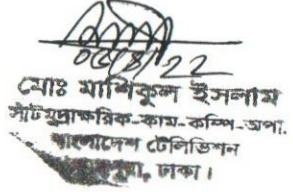 ০৫/৪/22
মোঃ মাশিকুল ইসলাম
সাঁট মুদ্রাক্ষরিক-কাম-কম্পি-অপা.
বাংলাদেশ টেলিভিশন
ঢাকা।